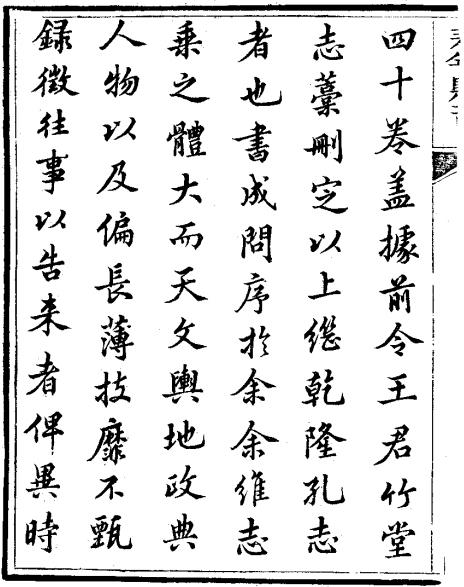 四十卷盖據前令王君竹堂
志藁刪定以上繼乾隆孔志
者也書成問序於余余維志
乗之體大而天文輿地政典
人物以及偏長薄技靡不甄
録徴往事以告来者俾異時